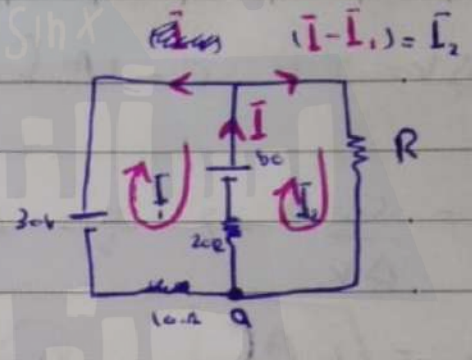 Sin x
(I - I₁) = I₂
I
R
I₁
30V
20Ω
10Ω
a